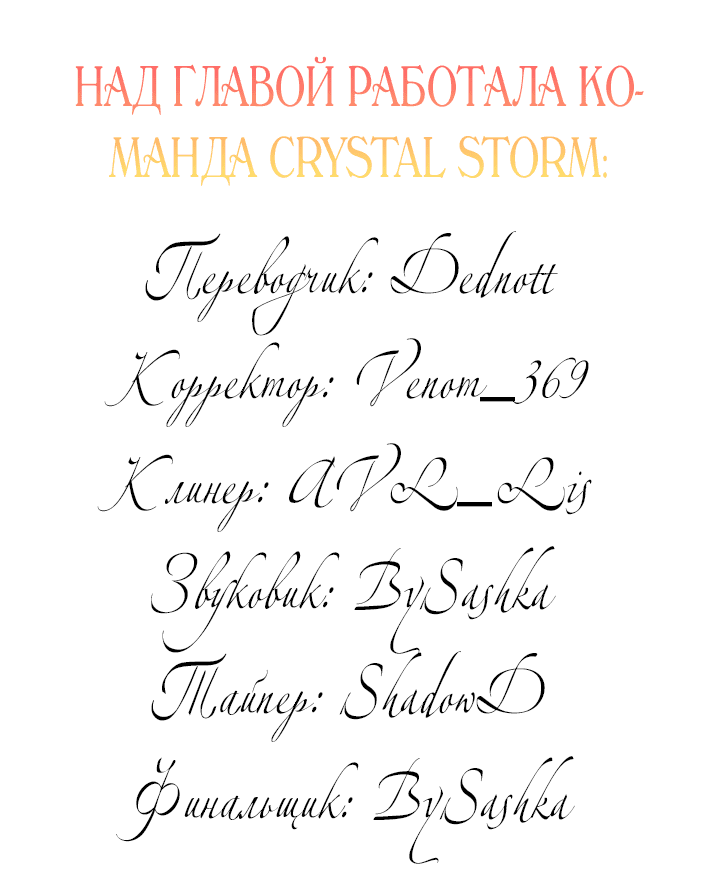 НАД ГЛАВОЙ РАБОТАЛА КО-
МАНДА CRYSTAL STORM:
Переводчик: Dednott
Корректор: Venom_369
Клинер: AVL_Lis
Звуковик: BySashka
Тайпер: ShadowD
Финальщик: BySashka